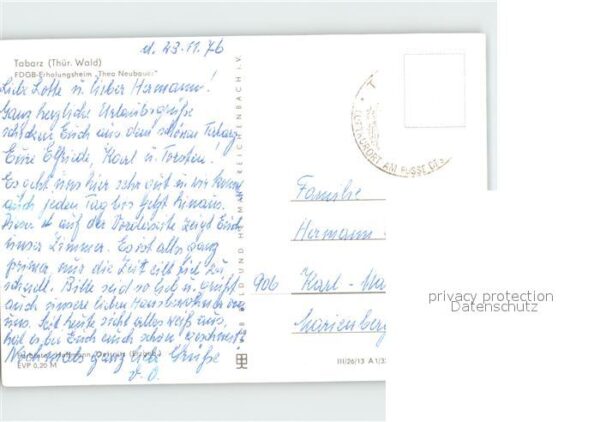 d. 23.11.76
Tabarz (Thür. Wald)
FDGB-Erholungsheim "Theo Neubauer"
Liebe Lotte u. lieber Hermann!
Ganz herzliche Urlaubsgrüße
schicken Euch aus dem schönen Tabarz
Eure Elfriede, Karl u. Torsten!
Es geht uns hier sehr gut u. wir können
auch jeden Tag bis jetzt hinaus.
Dieser auf der Vorderseite zeigt Euch
unser Zimmer. Es ist alles ganz
prima, nur die Zeit eilt viel zu
schnell. Bitte seid so lieb u. grüßt
auch unsere lieben Hausbewohner von
uns. Seit heute sieht alles weiß aus,
hat es bei Euch auch schon geschneit?
Nochmals ganz liebe Grüße
v. O.
EVP 0,20 M
BILD UND HEIMAT REICHENBACH I.V.
KURORT AM FUSSE DES
Familie
Hermann
906 Karl-Ma
Marienberg
III/26/13 A 1/3
privacy protection
Datenschutz